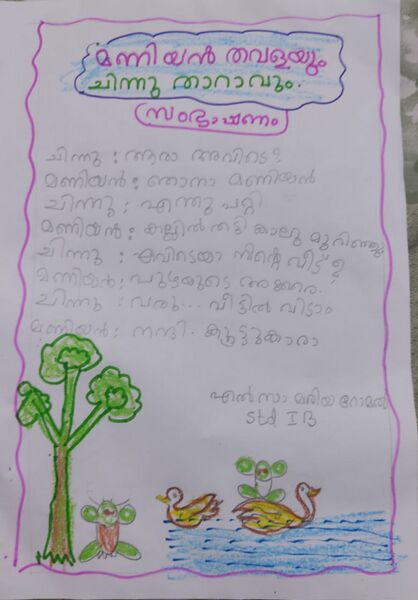 മണിയൻ തവളയും
ചിന്നു താറാവും.
സംഭാഷണം
ചിന്നു : ആരാ അവിടെ?
മണിയൻ: ഞാനാ മണിയൻ
ചിന്നു : എന്തു പറ്റി
മണിയൻ: കല്ലിൽ തട്ടി കാലു മുറിഞ്ഞു
ചിന്നു : എവിടെയാ നിന്റെ വീട് ?
മണിയൻ: പുഴയുടെ അക്കരെ.
ചിന്നു : വരു... വീട്ടിൽ വിടാം
മണിയൻ: നന്ദി. കൂട്ടുകാരാ
എൽസാ മരിയ റോമൽ
Std I B